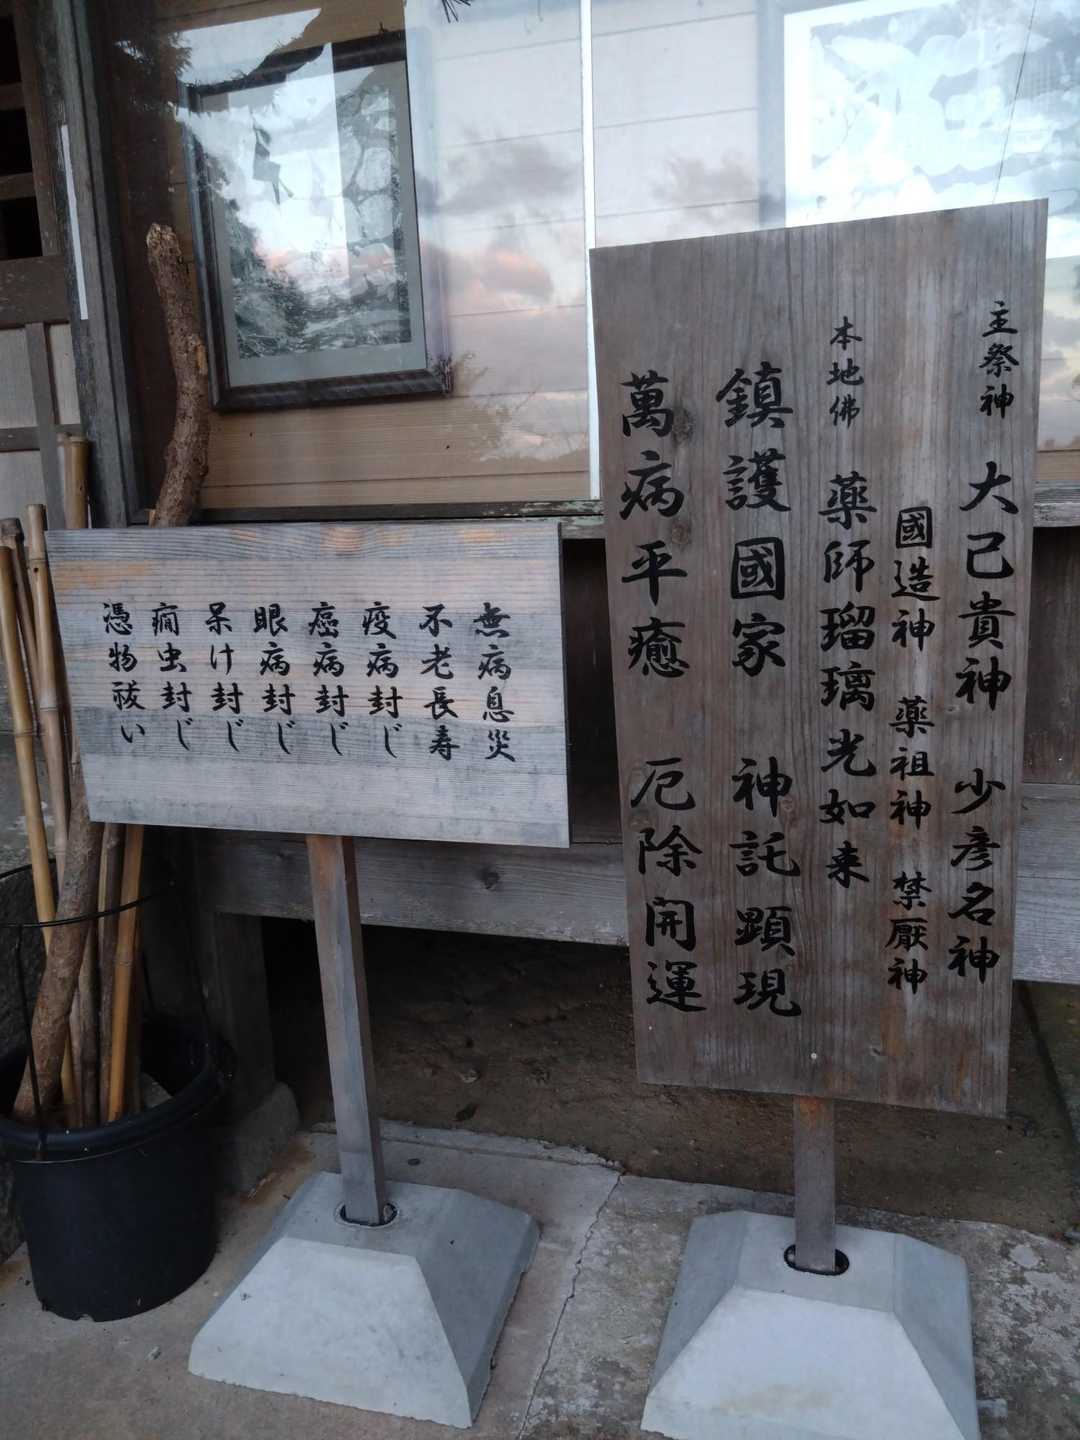 主祭神 大己貴神 少彦名神
國造神 薬祖神 禁厭神
本地佛 薬師瑠璃光如来
鎮護國家 神託顕現
萬病平癒 厄除開運
無病息災
不老長寿
疫病封じ
癌病封じ
眼病封じ
呆け封じ
癇虫封じ
憑物祓い